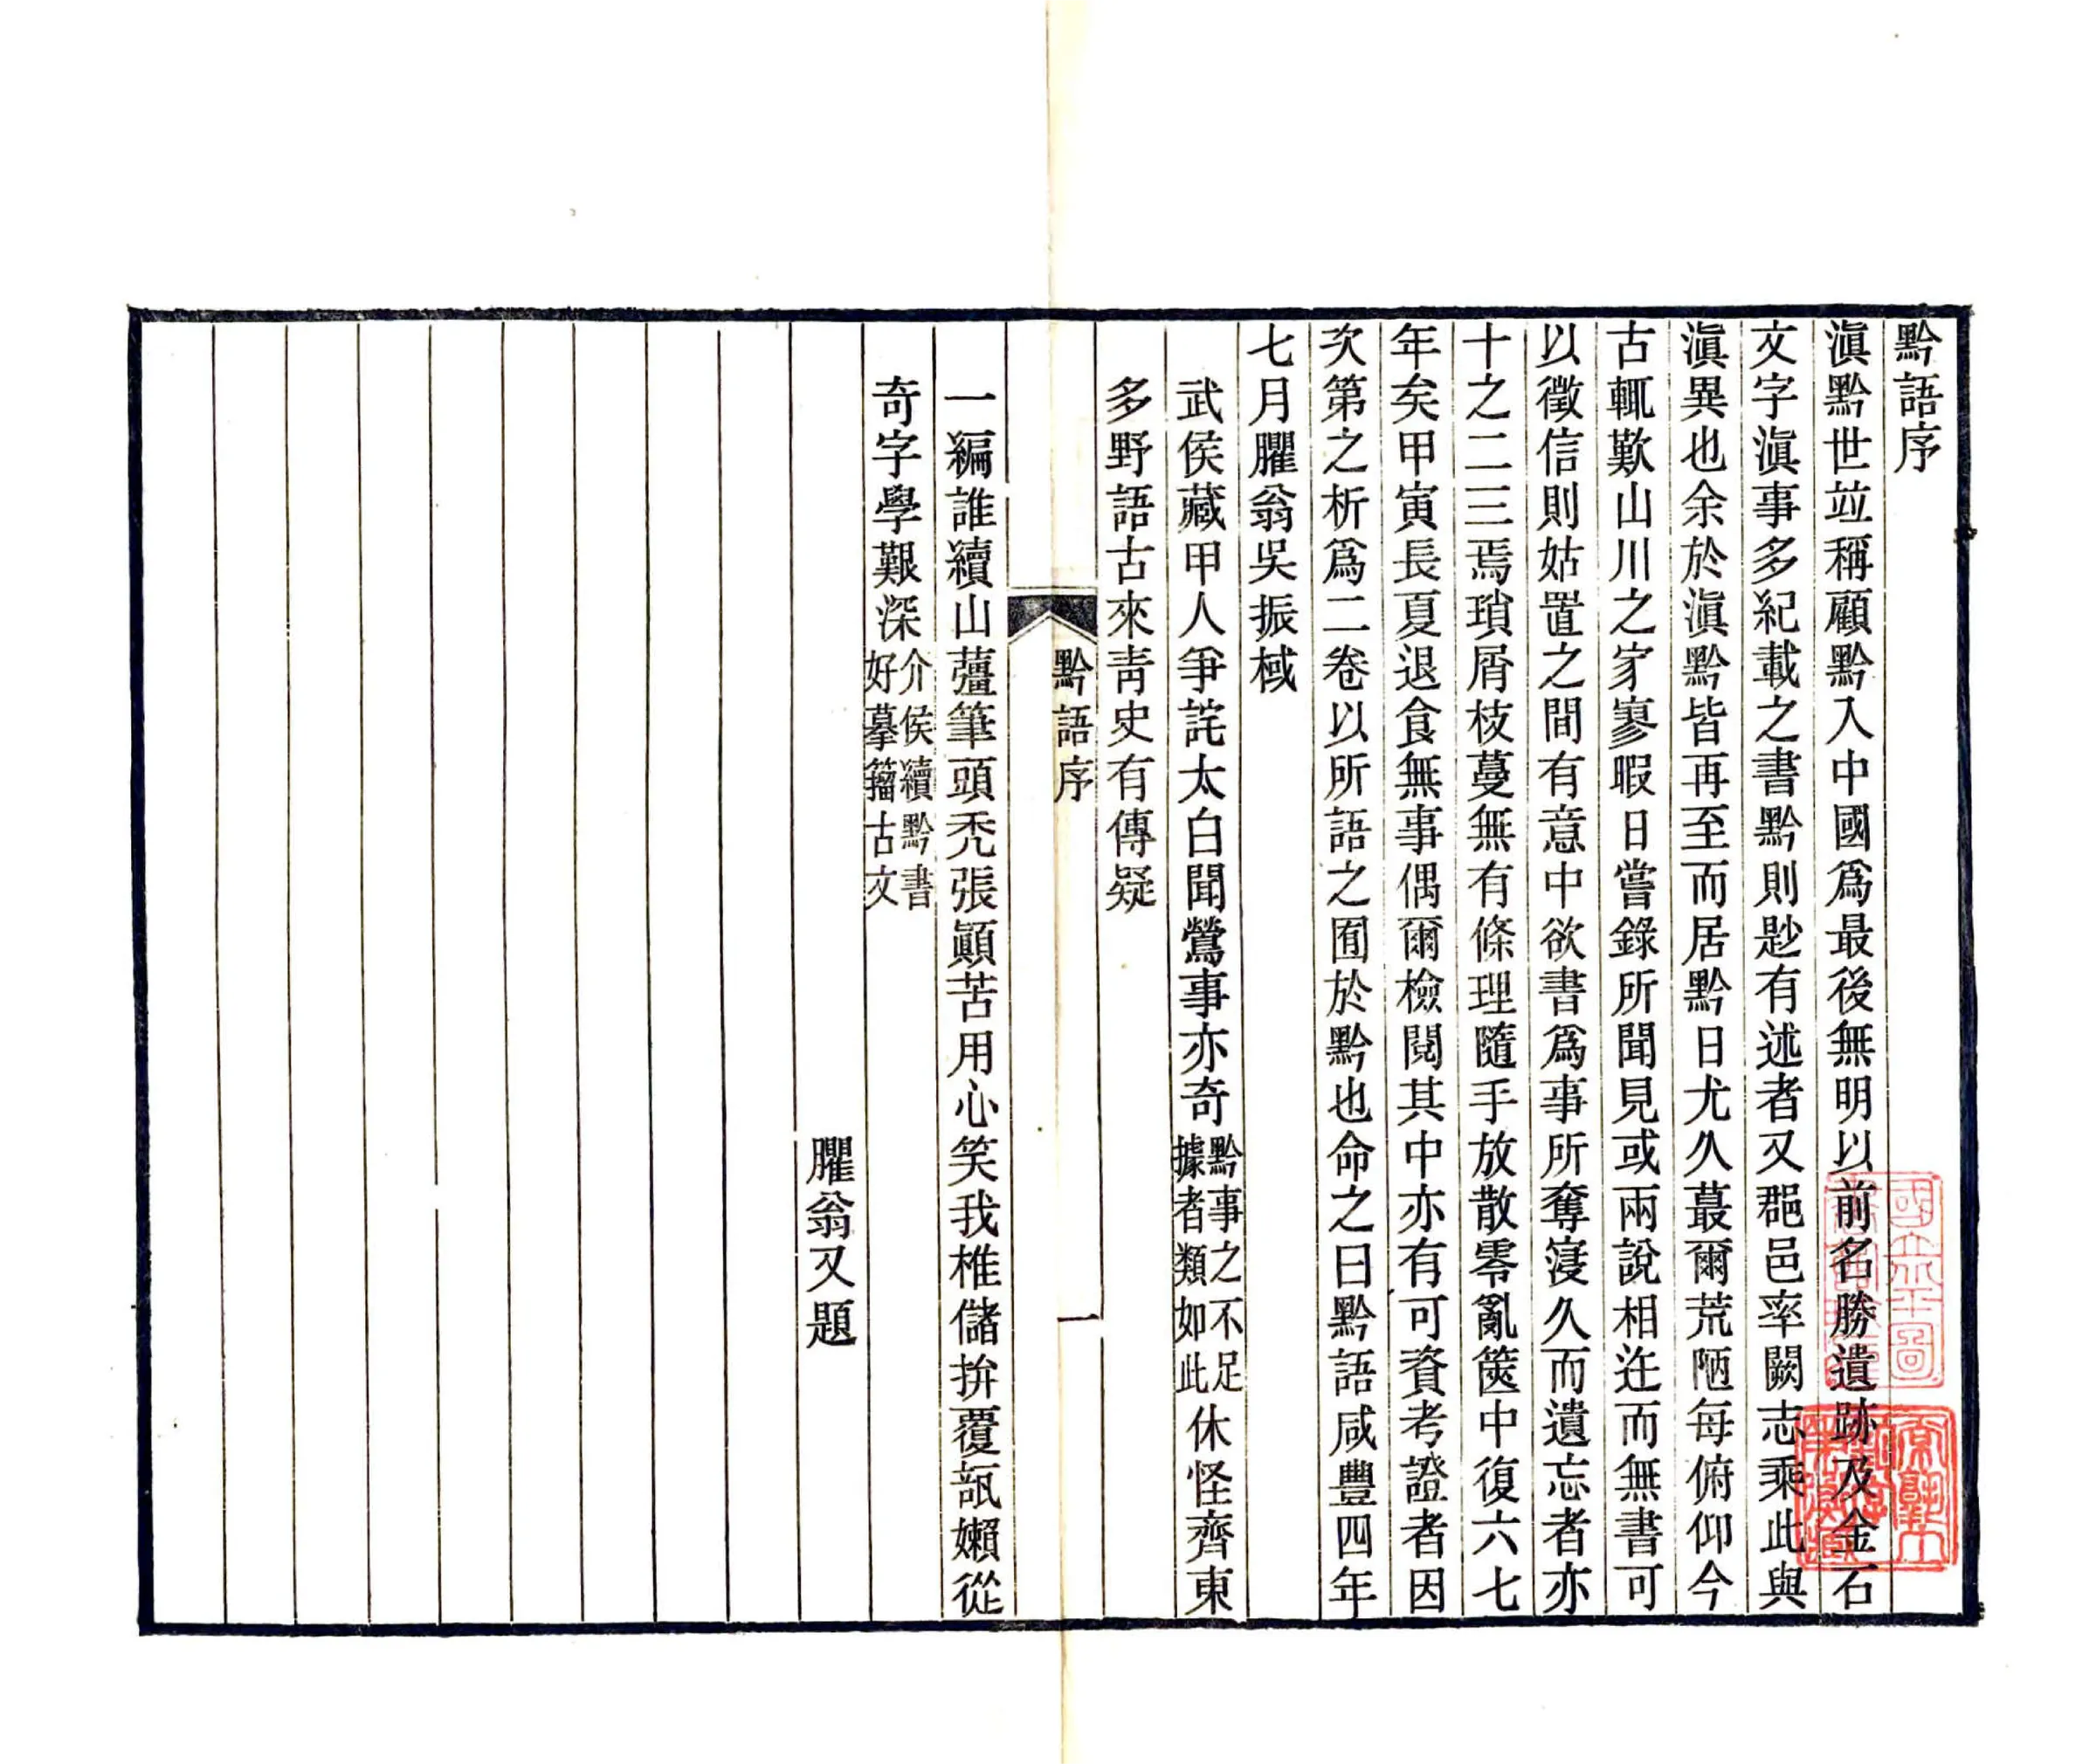 黔語序
滇黔世竝稱顧黔入中國爲最後無明以前名勝遺跡及金石
文字滇事多紀載之書黔則尟有述者又郡邑率闕志乘此與
滇異也余於滇黔皆再至而居黔日尤久蕞爾荒陋每俯仰今
古輒歎山川之寥寥暇日嘗錄所聞見或兩說相迕而無書可
以徵信則姑置之間有意中欲書爲事所奪寖久而遺忘者亦
十之二三焉瑣屑枝蔓無有條理隨手放散零亂篋中復六七
年矣甲寅長夏退食無事偶爾檢閱其中亦有可資考證者因
次第之析爲二卷以所語之囿於黔也命之曰黔語咸豐四年
七月臞翁吳振棫
武侯藏甲人爭詫太白聞鶯事亦奇黔事之不足據者類如此休怪齊東
多野語古來青史有傳疑
黔語序
一
一編誰續山薑筆頭禿張顚苦用心笑我椎儲拚覆瓿嬾從
奇字學艱深介侯續黔書好摹籀古文
臞翁又題